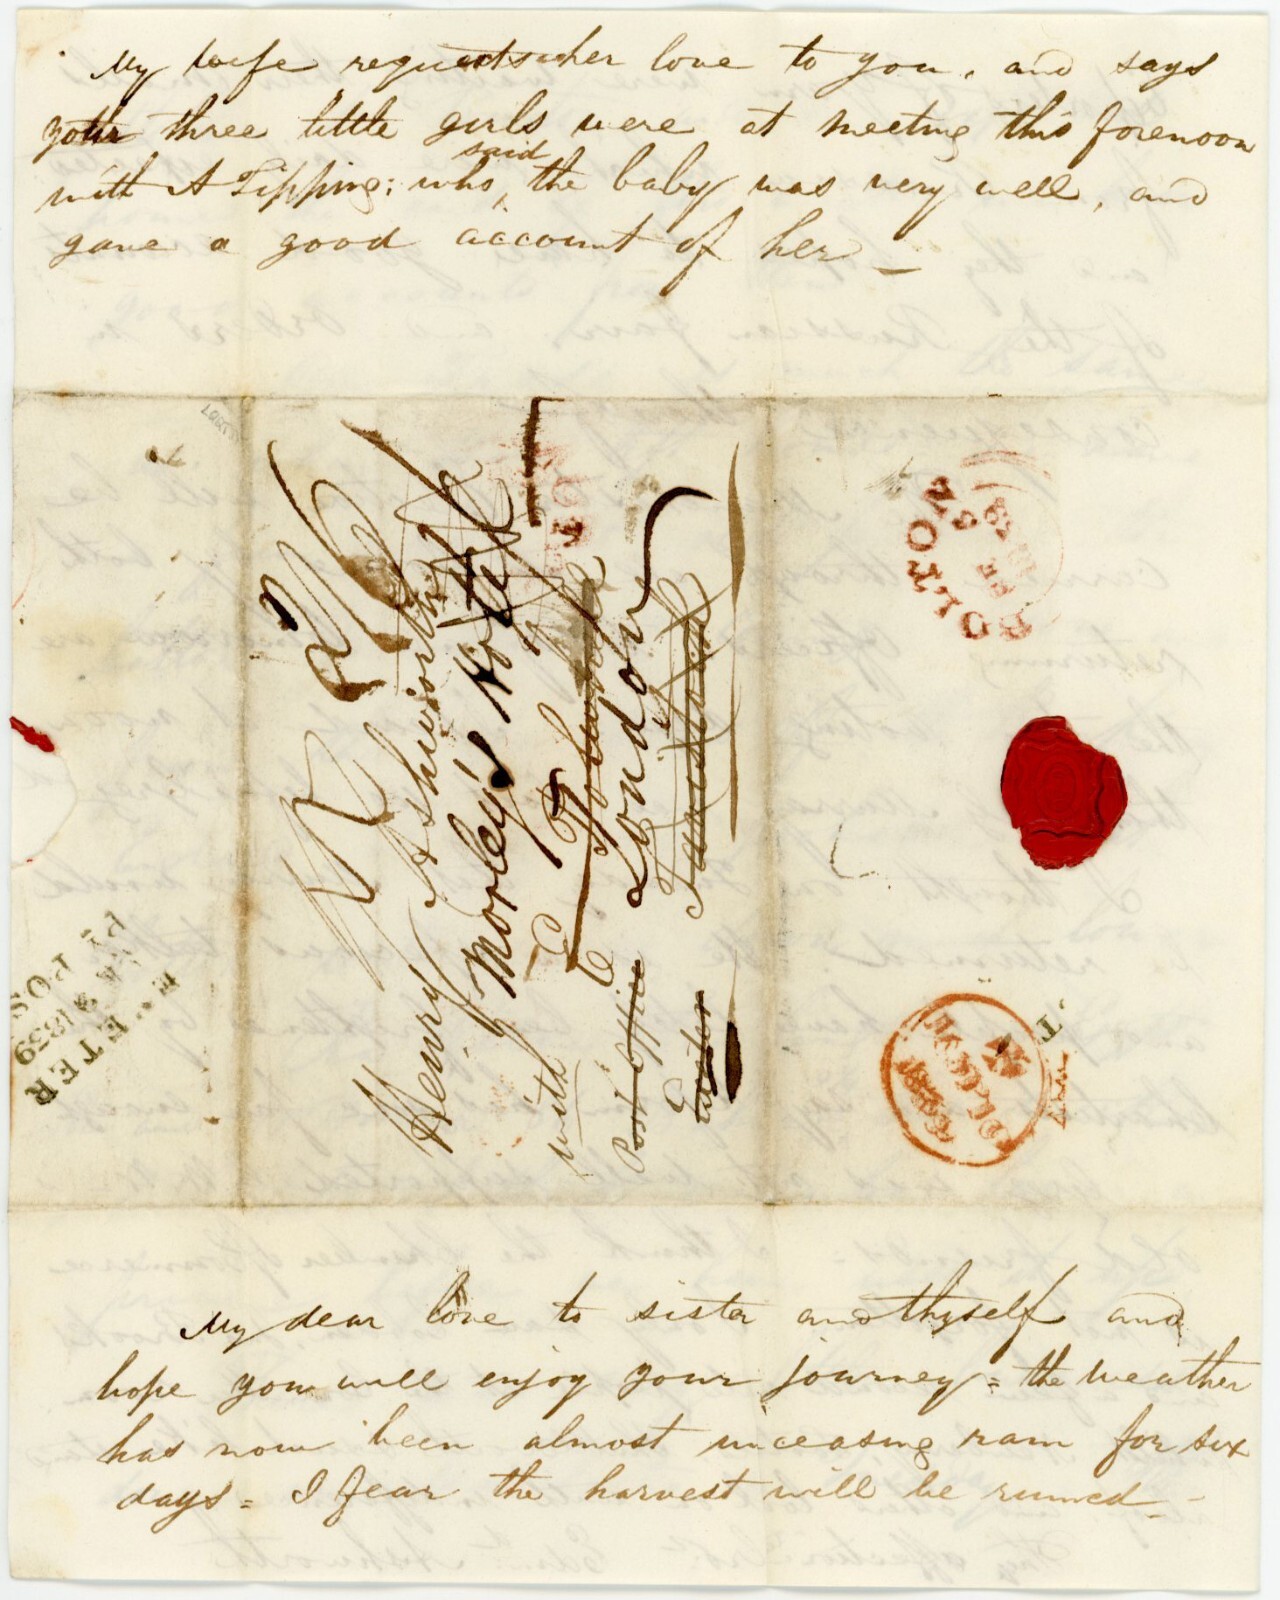 My wife requests her love to you, and says
your three little girls were at meeting this forenoon
with A Tipping; who said the baby was very well, and
gave a good account of her _
Henry Ashworth
Morley's Hotel
with
London
Post Office
Exeter Tavistock
BOLTON
EXETER
1839
My dear love to sister and thyself and
hope you will enjoy your journey = the weather
has now been almost unceasing rain for six
days = I fear the harvest will be ruined _